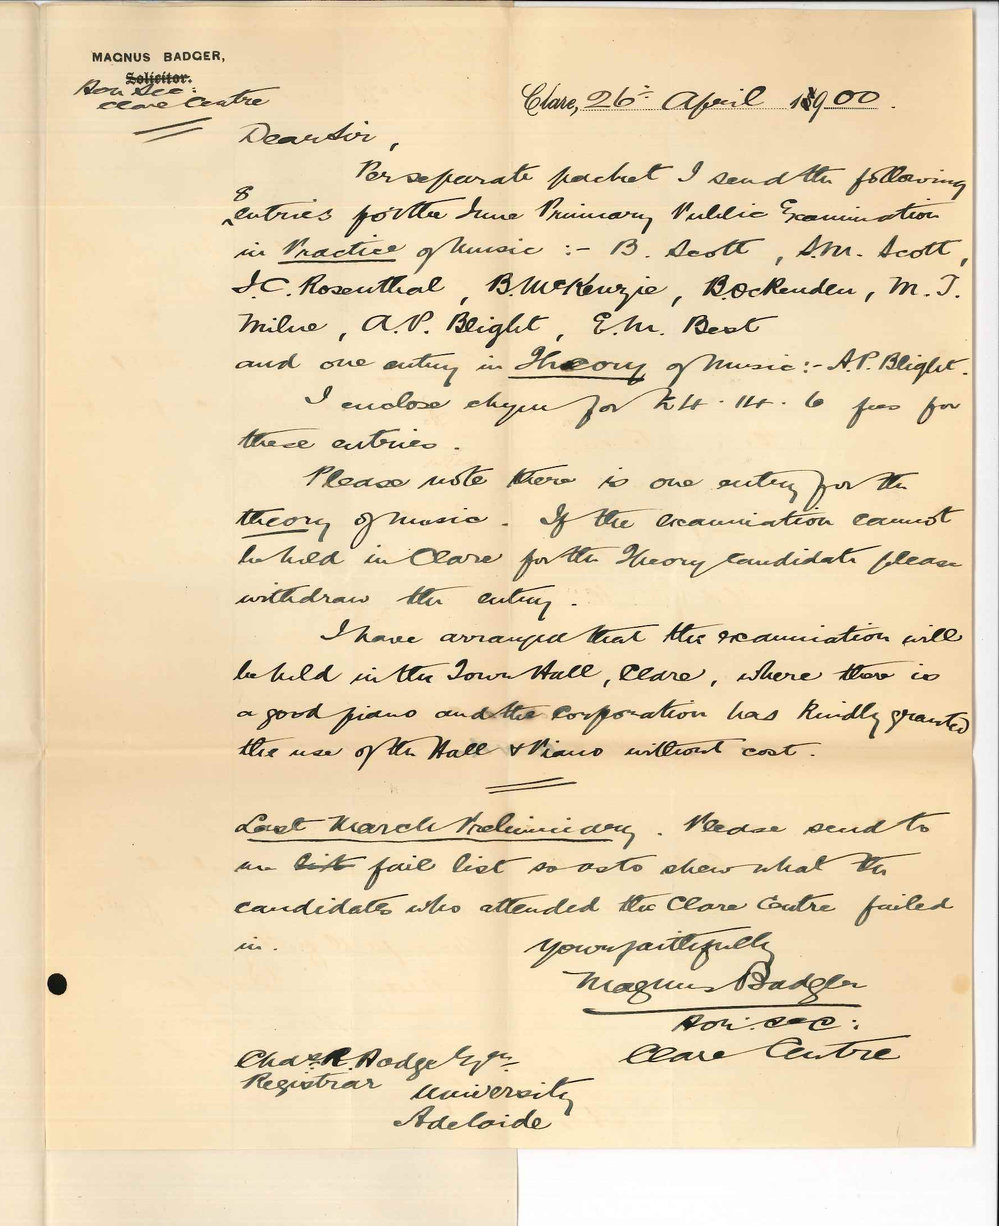 MAGNUS BADGER,
Solicitor.
Hon Sec:
Clare Centre
Clare, 26th April 1900.
Dear Sir,
Per separate packet I send the following
8
entries for the June Primary Public Examination
in Practice of Music :- B. Scott, S.M. Scott,
I.C. Rosenthal, B. McKenzie, B. Ockenden, M. J.
Milne, A.P. Blight, E.M. Best
and one entry in Theory of Music :- A.P. Blight.
I enclose cheque for £4 . 14 . 6 fees for
these entries.
Please note there is one entry for the
theory of music. If the examination cannot
be held in Clare for the Theory candidate please
withdraw the entry.
I have arranged that the examination will
be held in the Town Hall, Clare, where there is
a good piano and the corporation has kindly granted
the use of the Hall & Piano without cost.
Last March Preliminary. Please send to
me list fail list so as to shew what the
candidates who attended the Clare Centre failed
in.
Yours faithfully
Magnus Badger
Hon. Sec:
Clare Centre
Chas. R. Hodge Esqre.
Registrar
University
Adelaide